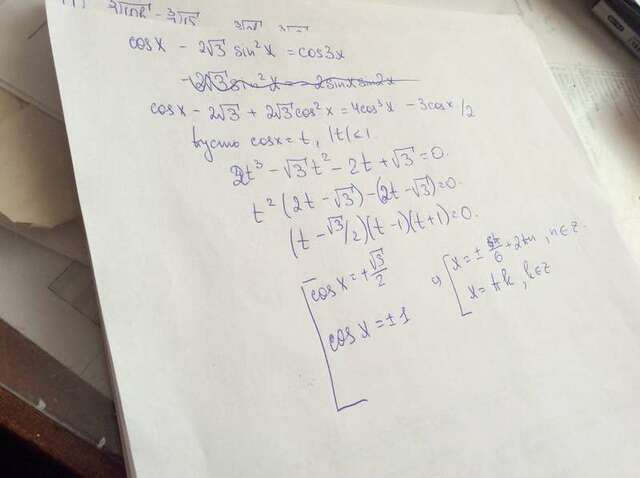 cosx - 2√3 sin²x = cos3x
cosx - 2√3 + 2√3cos²x = 4cos³x - 3cosx /2
Пусть cosx = t, |t|<1
2t³ - √3t² - 2t + √3 = 0.
t²(2t - √3) - (2t - √3) = 0.
(t - √3/2)(t - 1)(t + 1) = 0.
cosx = +√3/2
x = ± π/6 + 2πn, n∈Z
cosx = ±1
x = πk, k∈Z